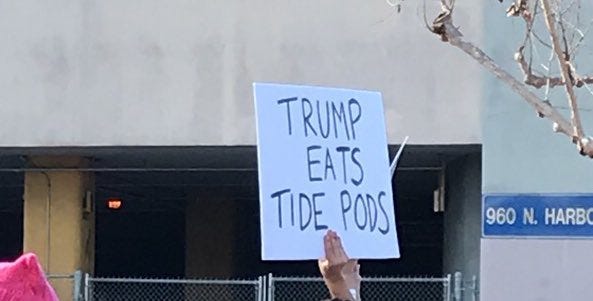 TRUMP
EATS
TIDE PODS
960 N. HARBO